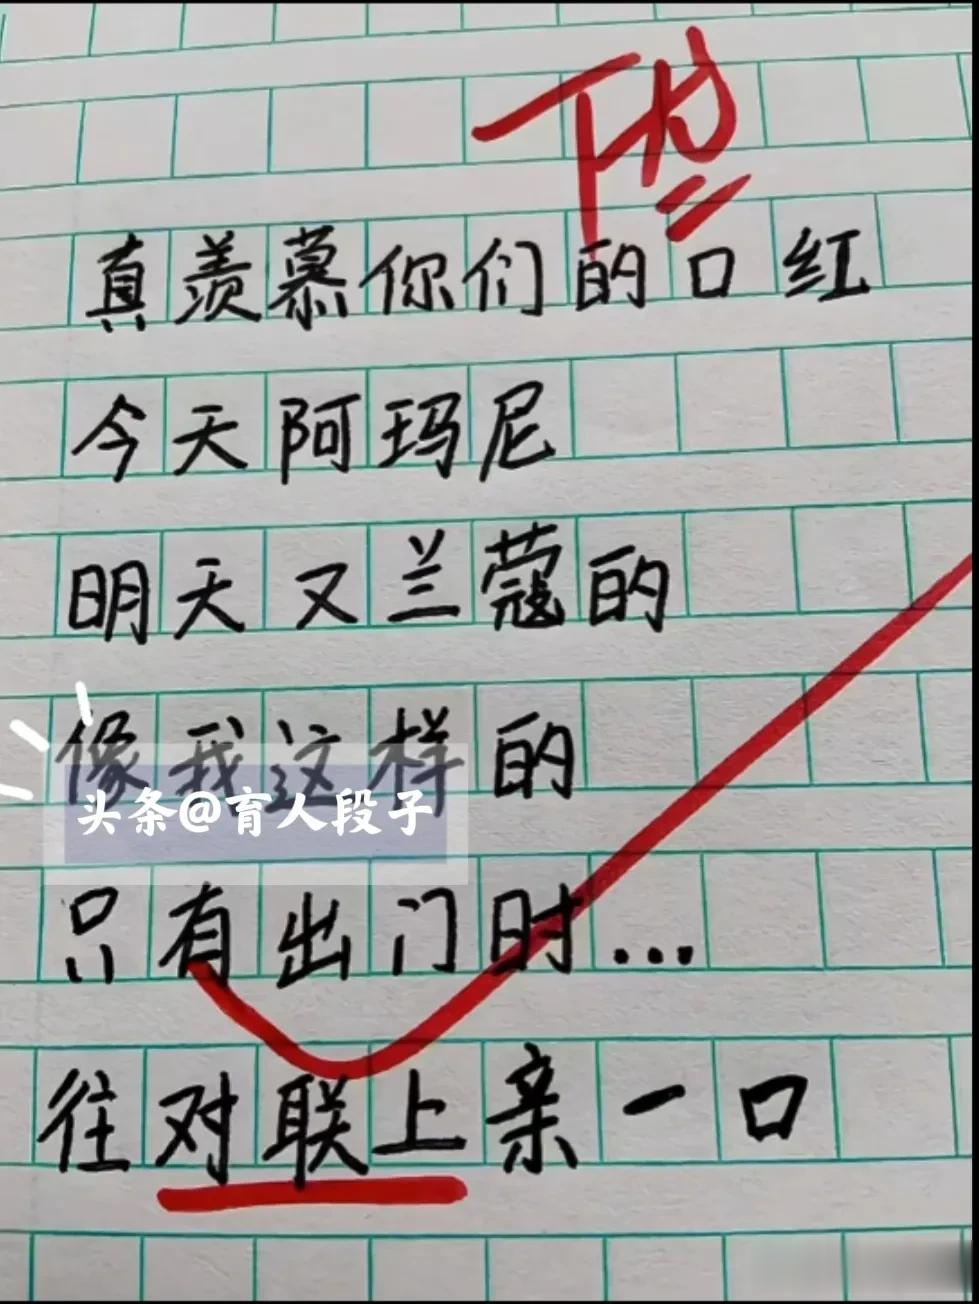 真羡慕你们的口红
今天阿玛尼
明天又兰蔻的
像我这样的
头条@育人段子
只有出门时...
往对联上亲一口